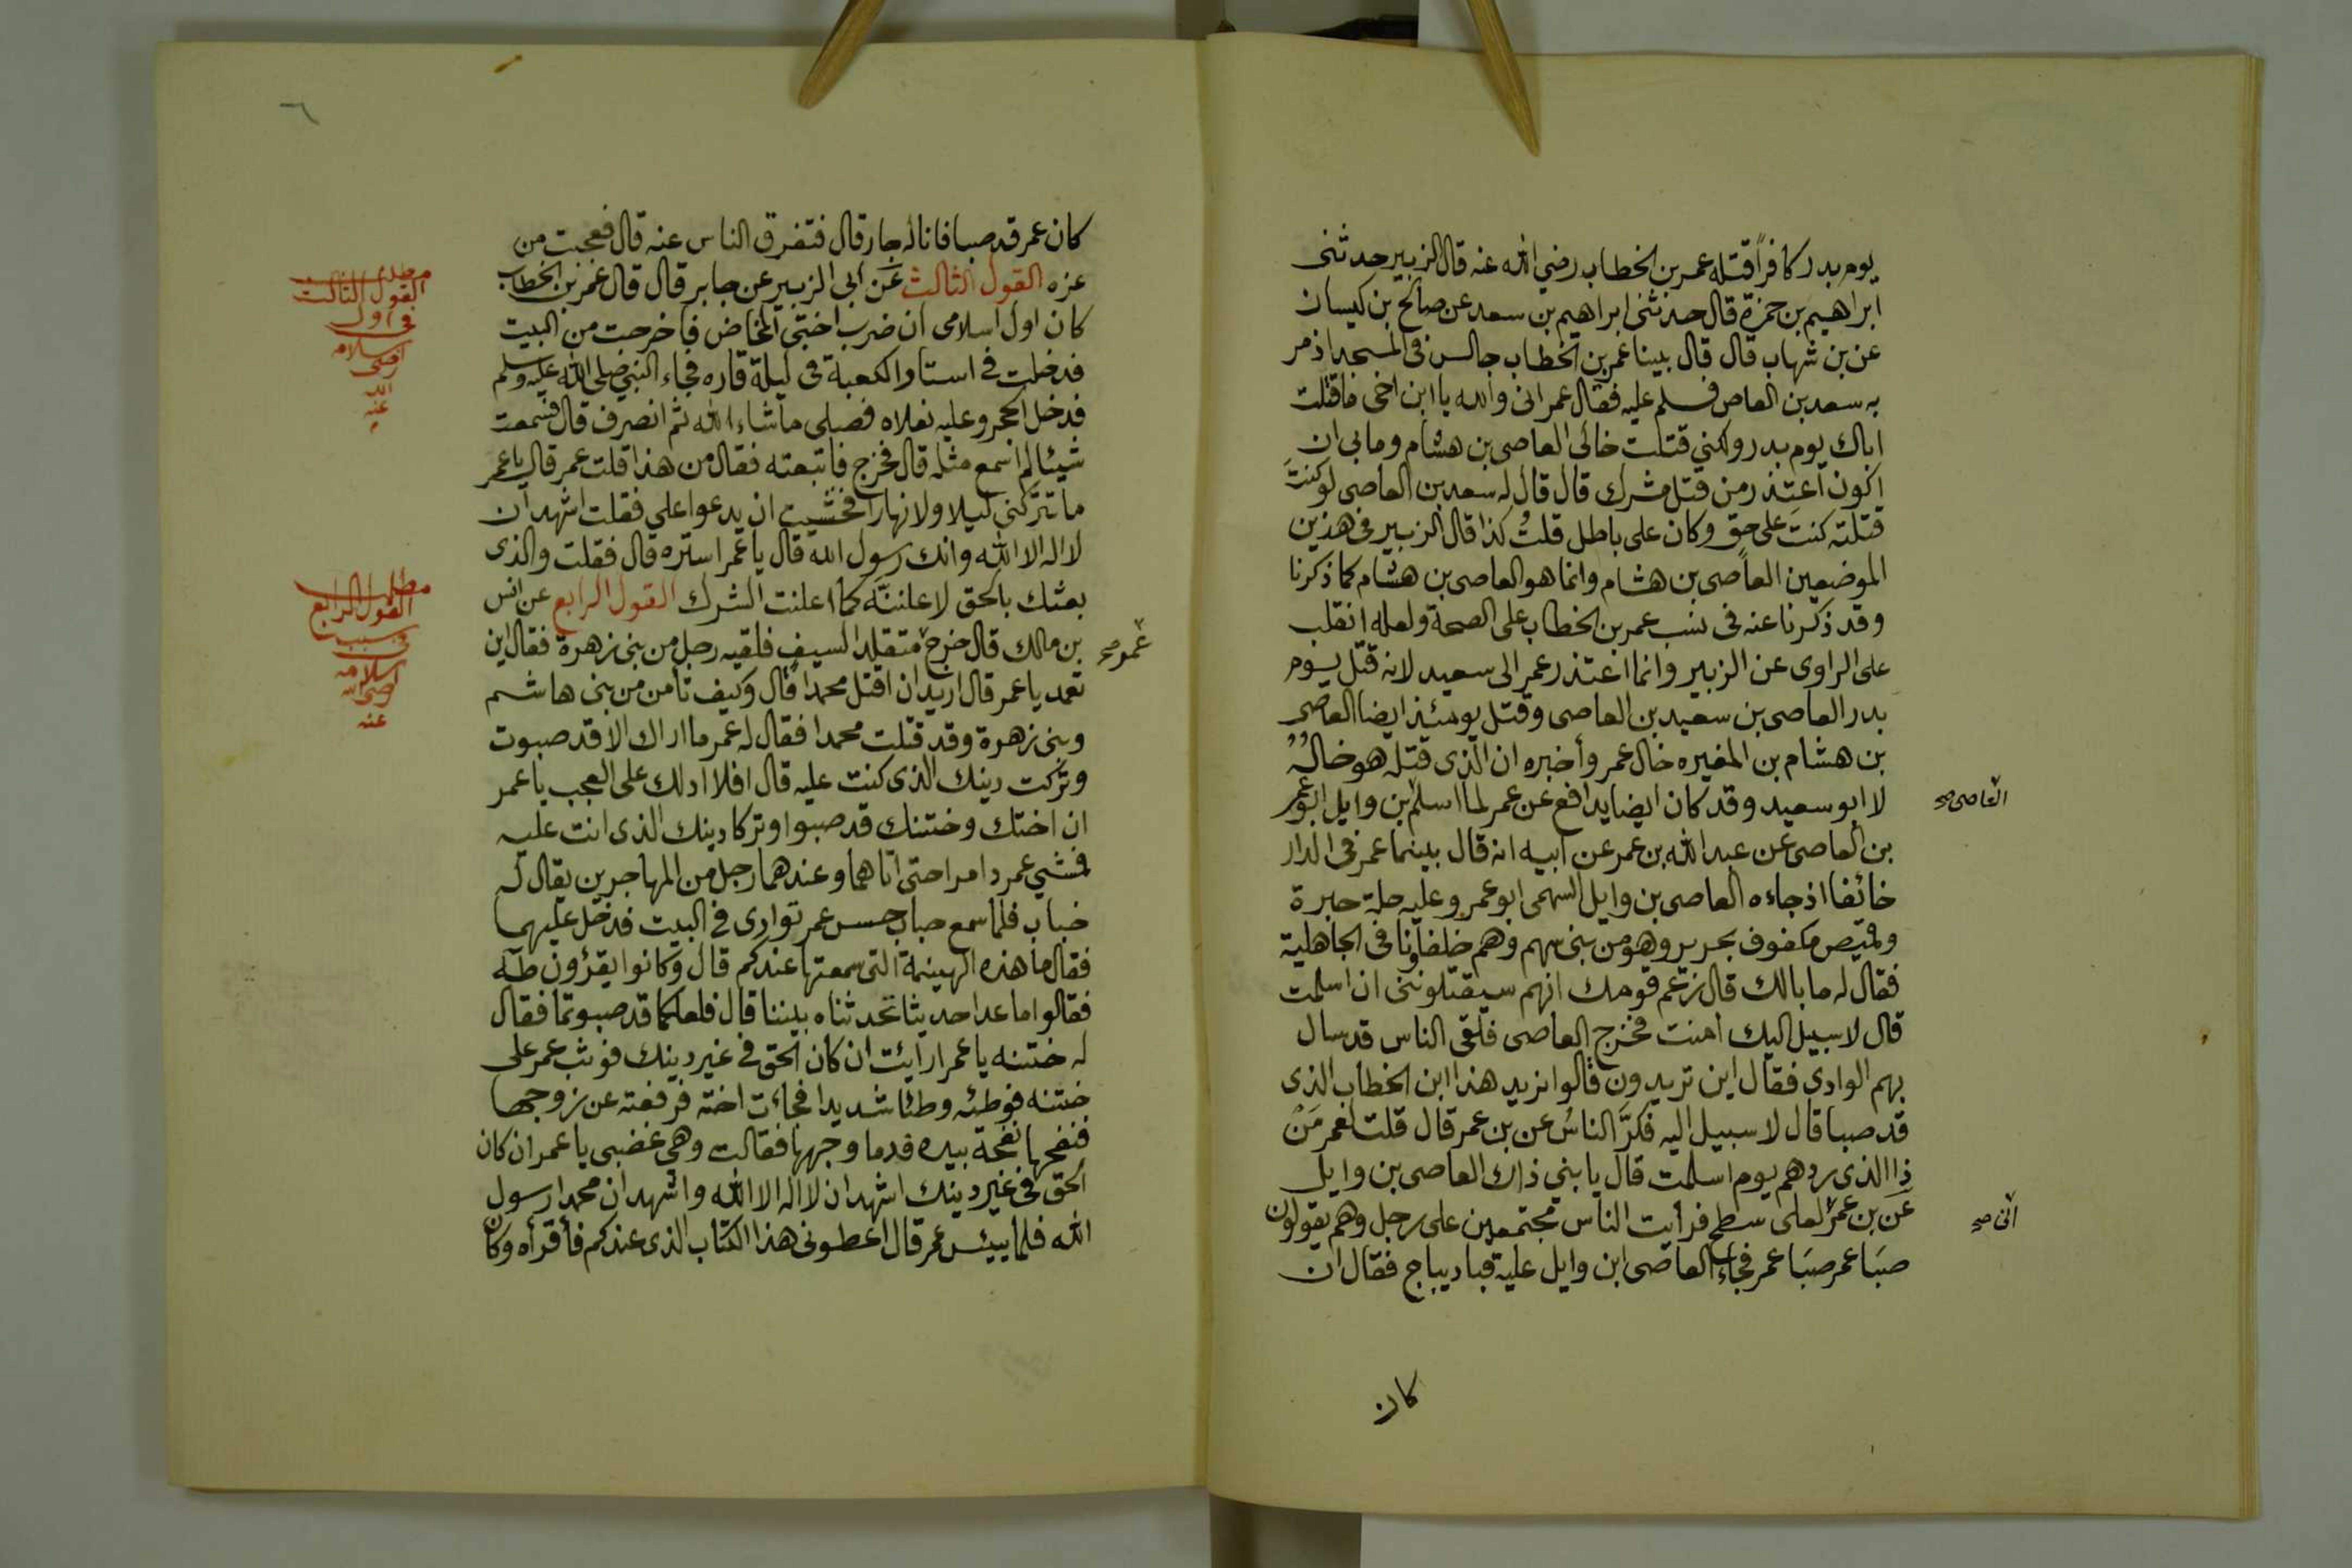 يوم بدر كافراً قتله عمر بن الخطاب رضي الله عنه قال الزبير حدثنى
ابراهيم بن حمزة قال حدثنى ابراهيم بن سعد عن صالح بن كيسان
عن بن شهاب قال قال بينا عمر بن الخطاب جالس فى المسجد اذ مر
به سعد بن العاص فسلم عليه فقال عمر انى والله يا ابن اخى ما قتلت
اباك يوم بدر ولكني قتلت خالى العاصى بن هشام وما بى ان
اكون اعتذر من قتل مشرك قال قال له سعد بن العاصى لو كنتَ
قتلته كنتَ على حق وكان على باطل قلتُ كذا قال الزبير فى هذين
الموضعين العاصى بن هشام وانما هو العاصى بن هشام كما ذكرنا
وقد ذكرنا عنه فى نسب عمر بن الخطاب على الصحة ولعله انقلب
على الراوى عن الزبير وانما اعتذر عمر الى سعيد لانه قتل يوم
بدر العاصى بن سعيد بن العاصى وقتل يومئذ ايضا العاصى
بن هشام بن المغيره خال عمر وأخبره ان الذى قتله هو خالُهُ
لا ابو سعيد وقد كان ايضا يدافع عن عمر لما اسلم بن وايل ابو عمر
العاصى صح
بن العاصى عن عبد الله بن عمر عن ابيه انه قال بينما عمر فى الدار
خائفا اذ جاءه العاصى بن وايل السهمى ابو عمرو عليه حلة حبرة
وقميص مكفوف بحرير وهو من بنى سهم وهم خلفاونا فى الجاهلية
فقال له ما بالك قال زعم قومك انهم سيقتلوننى ان اسلمت
قال لا سبيل اليك امنت فخرج العاصى فلقى الناس قد سال
بهم الوادى فقال اين تريدون قالوا نريد هذا ابن الخطاب الذى
قد صبا قال لا سبيل اليه فكرَّ الناسُ عن بن عمر قال قلت لعمر مَنْ
ذا الذى ردهم يوم اسلمت قال يا بني ذاك العاصى بن وايل
عَن بن عمر لعلى سطح فرأيت الناس مجتمعين على رجل وهم يقولون
انى صح
صَبَا عمر صَبَا عمر فجاء العاصى ابن وايل عليه قبا ديباج فقال ان
كان
كان عمر قد صبا فانا له جار قال فتفرق الناس عنه قال فعجبت من
عزه القول الثالث عَن أبى الزبير عن جابر قال قال عمر بن الخطاب
كان اول اسلامى ان ضرب اختى المخاض فاخرجت من البيت
فدخلت فى استار الكعبة فى ليلة قاره فجاء النبى صلى الله عليه وسلم
فدخل الحجر وعليه نعلاه فصلى ما شاء الله ثم انصرف قال فسمعت
شيئا لم اسمع مثله قال فخرج فاتبعته فقال من هذا قلت عمر قال يا عمر
ما تتركنى ليلا ولا نهارا فخشيت ان يدعوا على فقلت اشهد ان
لا اله الا الله وانك رسول الله قال يا عمر استره قال فقلت والذى
بعثك بالحق لاعلننَّه كما اعلنت الشرك القول الرابع عن انس
بن مالك قال خرج متقلدا السيف فلقيه رجل من بنى زهرة فقال اين
عمر صح
تعمد يا عمر قال اريد ان اقتل محمدا قال وكيف تامن من بنى هاشم
وبنى زهرة وقد قتلت محمدا فقال له عمر ما اراك الا قد صبوت
وتركت دينك الذى كنت عليه قال افلا ادلك على العجب يا عمر
ان اختك وختنك قد صبوا وتركا دينك الذى انت عليه
فمشي عمر دامرا حتى اتاهما وعندهما رجل من المهاجرين يقال له
خباب فلما سمع خباب حس عمر توارى فى البيت فدخل عليهما
فقال ما هذه الهينمة التى سمعتها عندكم قال وكانوا يقرؤن طه
فقالوا ما عدا حديثا تحدثناه بيننا قال فلعلكما قد صبوتما فقال
له ختنه يا عمر ارأيت ان كان الحق فى غير دينك فوثب عمر على
ختنه فوطئه وطئا شديدا فجاءت اخته فرفعته عن زوجها
فنفحها نفحة بيده فدما وجهها فقالت وهي غضبى يا عمر ان كان
الحق فى غير دينك اشهد ان لا اله الا الله واشهد ان محمدا رسول
الله فلما يئس عمر قال اعطونى هذا الكتاب الذى عندكم فأقرأه وكان
٦
مطلب
القول الثالث
فى اول
اسلامه
رضى
الله
عنه
مطلب
القول الرابع
فى سبب
اسلامه
رضى الله
عنه